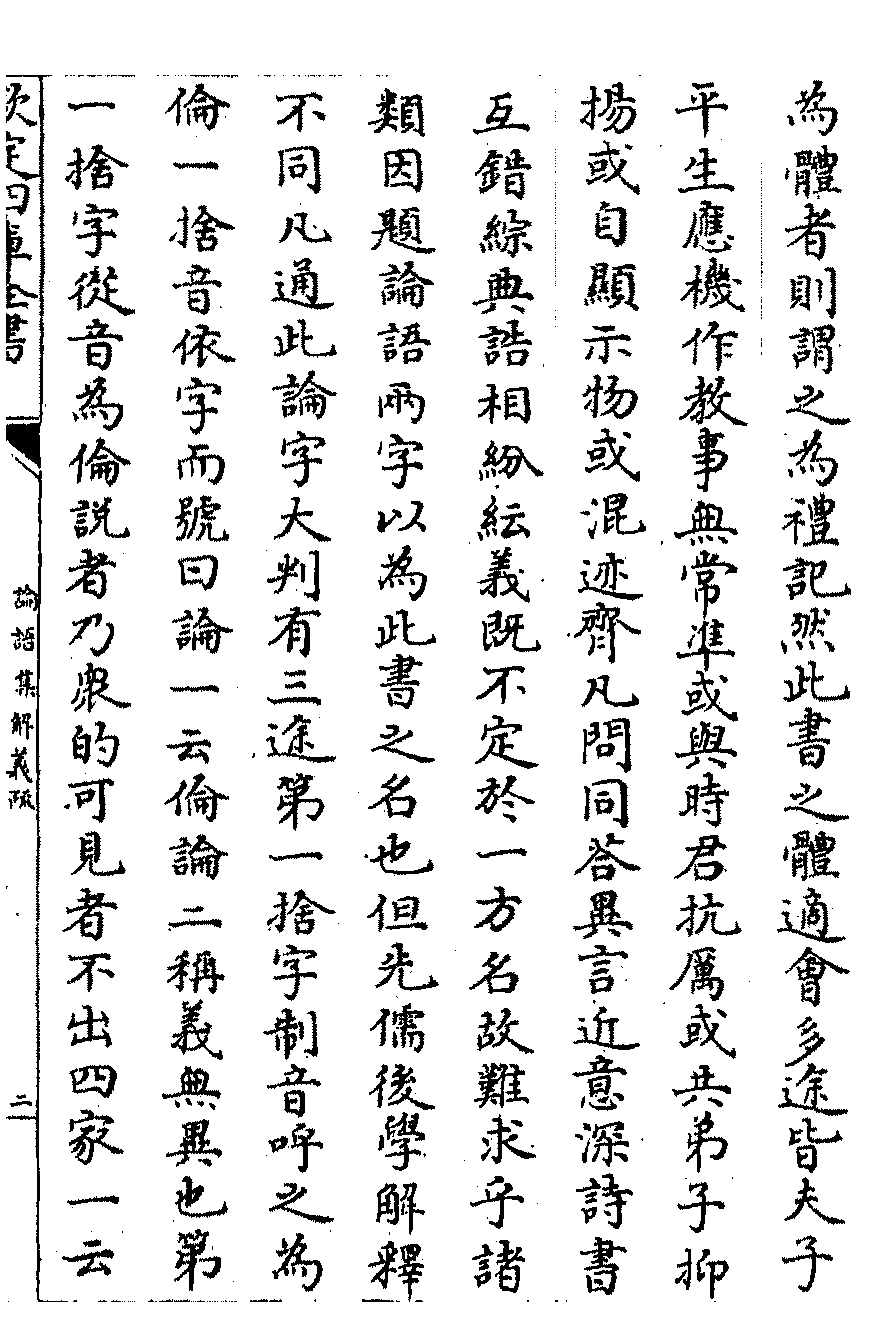 為體者則謂之為禮記然此書之體適會多途皆夫子
平生應機作教事無常準或與時君抗厲或共弟子抑
揚或自顯示物或混迹齊凡問同答異言近意深詩書
互錯綜典誥相紛紜義既不定於一方名故難求乎諸
類因題論語兩字以為此書之名也但先儒後學解釋
不同凡通此論字大判有三途第一捨字制音呼之為
倫一捨音依字而號曰論一云倫論二稱義無異也第
一捨字從音為倫說者乃衆的可見者不出四家一云
欽定四庫全書
論語集解義疏
二